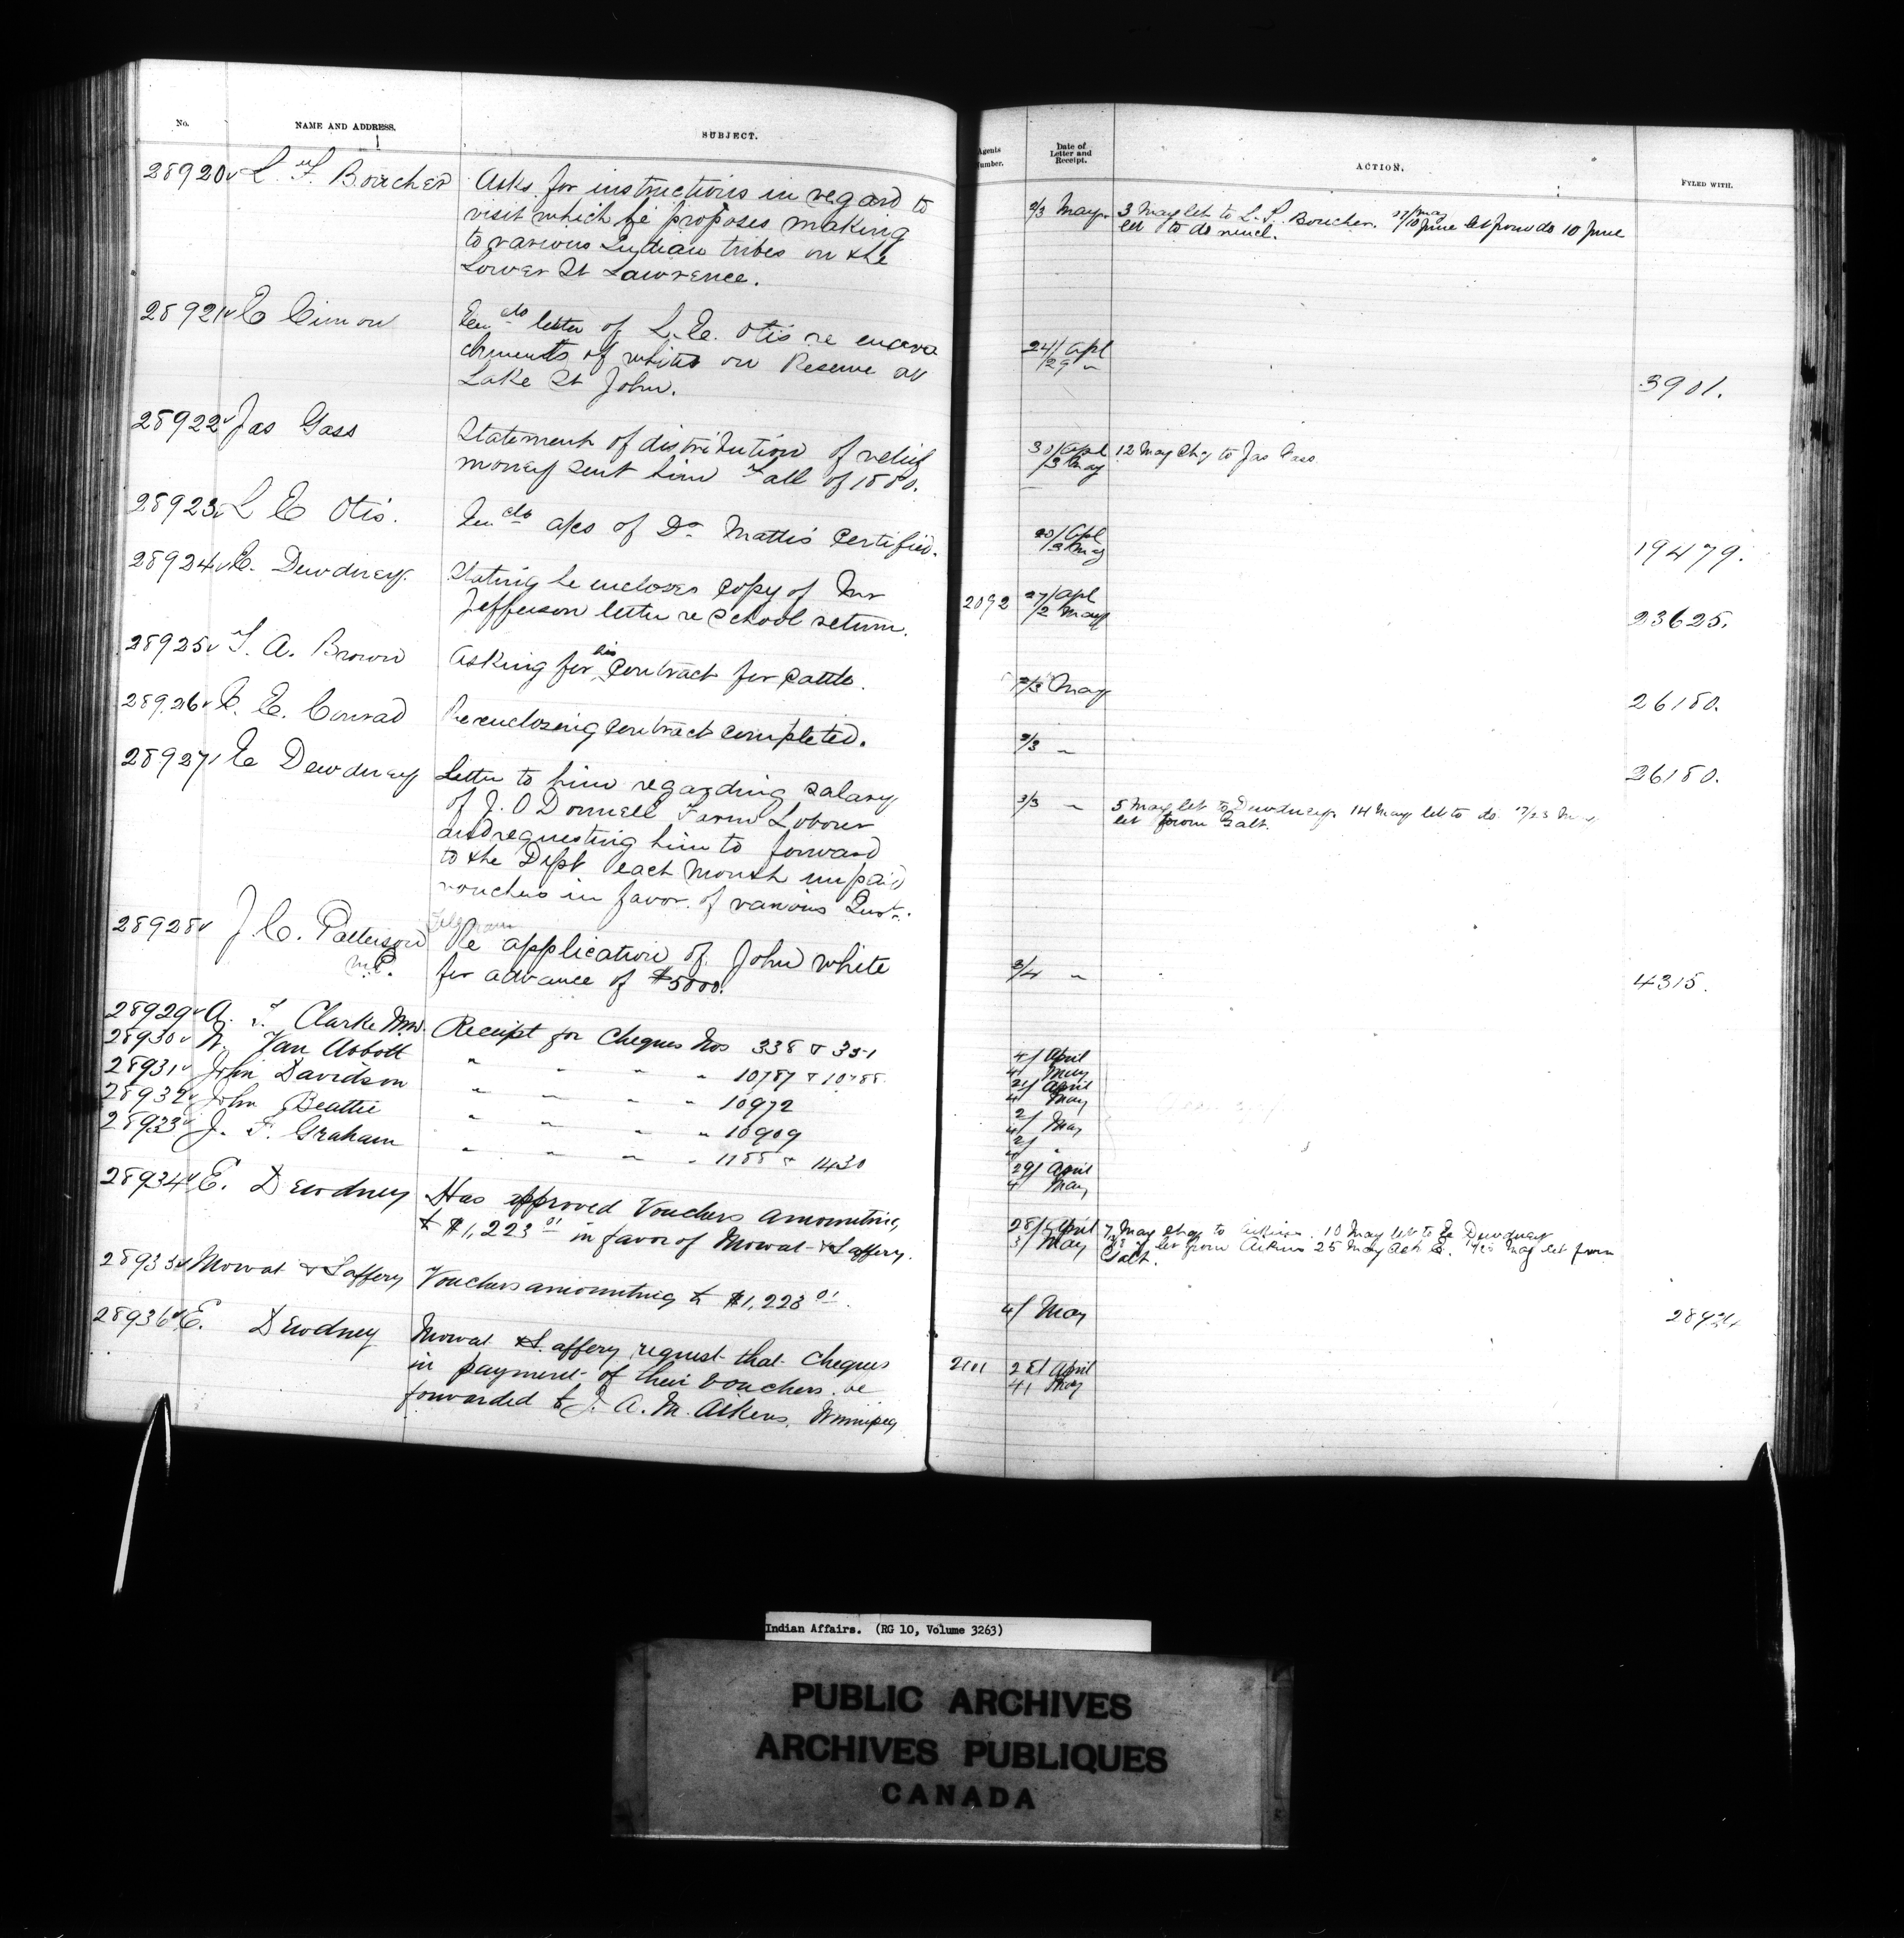 No. NAME AND ADDRESS. SUBJECT.
28920 L. F. Boucher Asks for instructions in regard to
visit which he proposes making
to various Indian tribes on the
Lower St Lawrence.
28921 E Cimon letter of L. E. Otis re encroa
chments of whites on Reserve at
Lake St John.
28922 Jas Gass Statement of distribution of relief
money sent him Fall of 1880.
28923 L E Otis. a/cs of Dr Mattis certified.
28924 E. Dewdney. Stating he encloses copy of Mr
Jefferson letter re School return.
28925 T. A. Brown Asking for his Contract for Cattle.
28926 C. E. Conrad Re enclosing contract completed.
28927 E Dewdney Letter to him regarding salary
of J. O Donnell Farm Labour
and requesting him to forward
to the Dept each month unpaid
vouchers in favor of various
Telegram
28928 J. C. Patterson Re application of John White
M.P. for advance of $5000.
28929 A. F. Clarke Receipt for Cheques Nos 338 & 351
28930 W. Van Abbott " " " " 10787 & 10788
28931 John Davidson " " " " 10972
28932 John Beattie " " " " 10909
28933 J. F. Graham " " " " 1188 & 1430
28934 E. Dewdney Has approved Vouchers amounting
to $1,223 01 in favor of Mowat & Saffery.
28935 Mowat & Saffery Vouchers amounting to $1,223 01.
28936 E. Dewdney Mowat & Saffery request that Cheques
in payment of their Vouchers be
forwarded to J. A. M. Aikens, Winnipeg
Agents Number. Date of Letter and Receipt. ACTION. FYLED WITH.
2/3 May 3 May let to L. F. Boucher. June let from do 10 June
let to do
24/ Apl
/29 "
3901.
30/ Apl 12 May Chq to Jas Gass
/3 May
/ Apl
/3 May
19479.
2092 27/ Apl
/2 May
23625.
2/3 May
26180.
2/3 "
26180.
2/3 " 5 May let to Dewdney 14 May let to do
let from Galt.
3/4 "
4315.
4/ April
4/ May
21/ April
4 May
2/
4/ May
2/ "
29/ April
4 May
28/ April 7 May chq to Aikins. 10 May let to E Dewdney
3/ May let from Aikins 25 May let from
Galt.
4/ May
28934
2101 28/ April
4/ May
Indian Affairs. (RG 10, Volume 3263)
PUBLIC ARCHIVES
ARCHIVES PUBLIQUES
CANADA